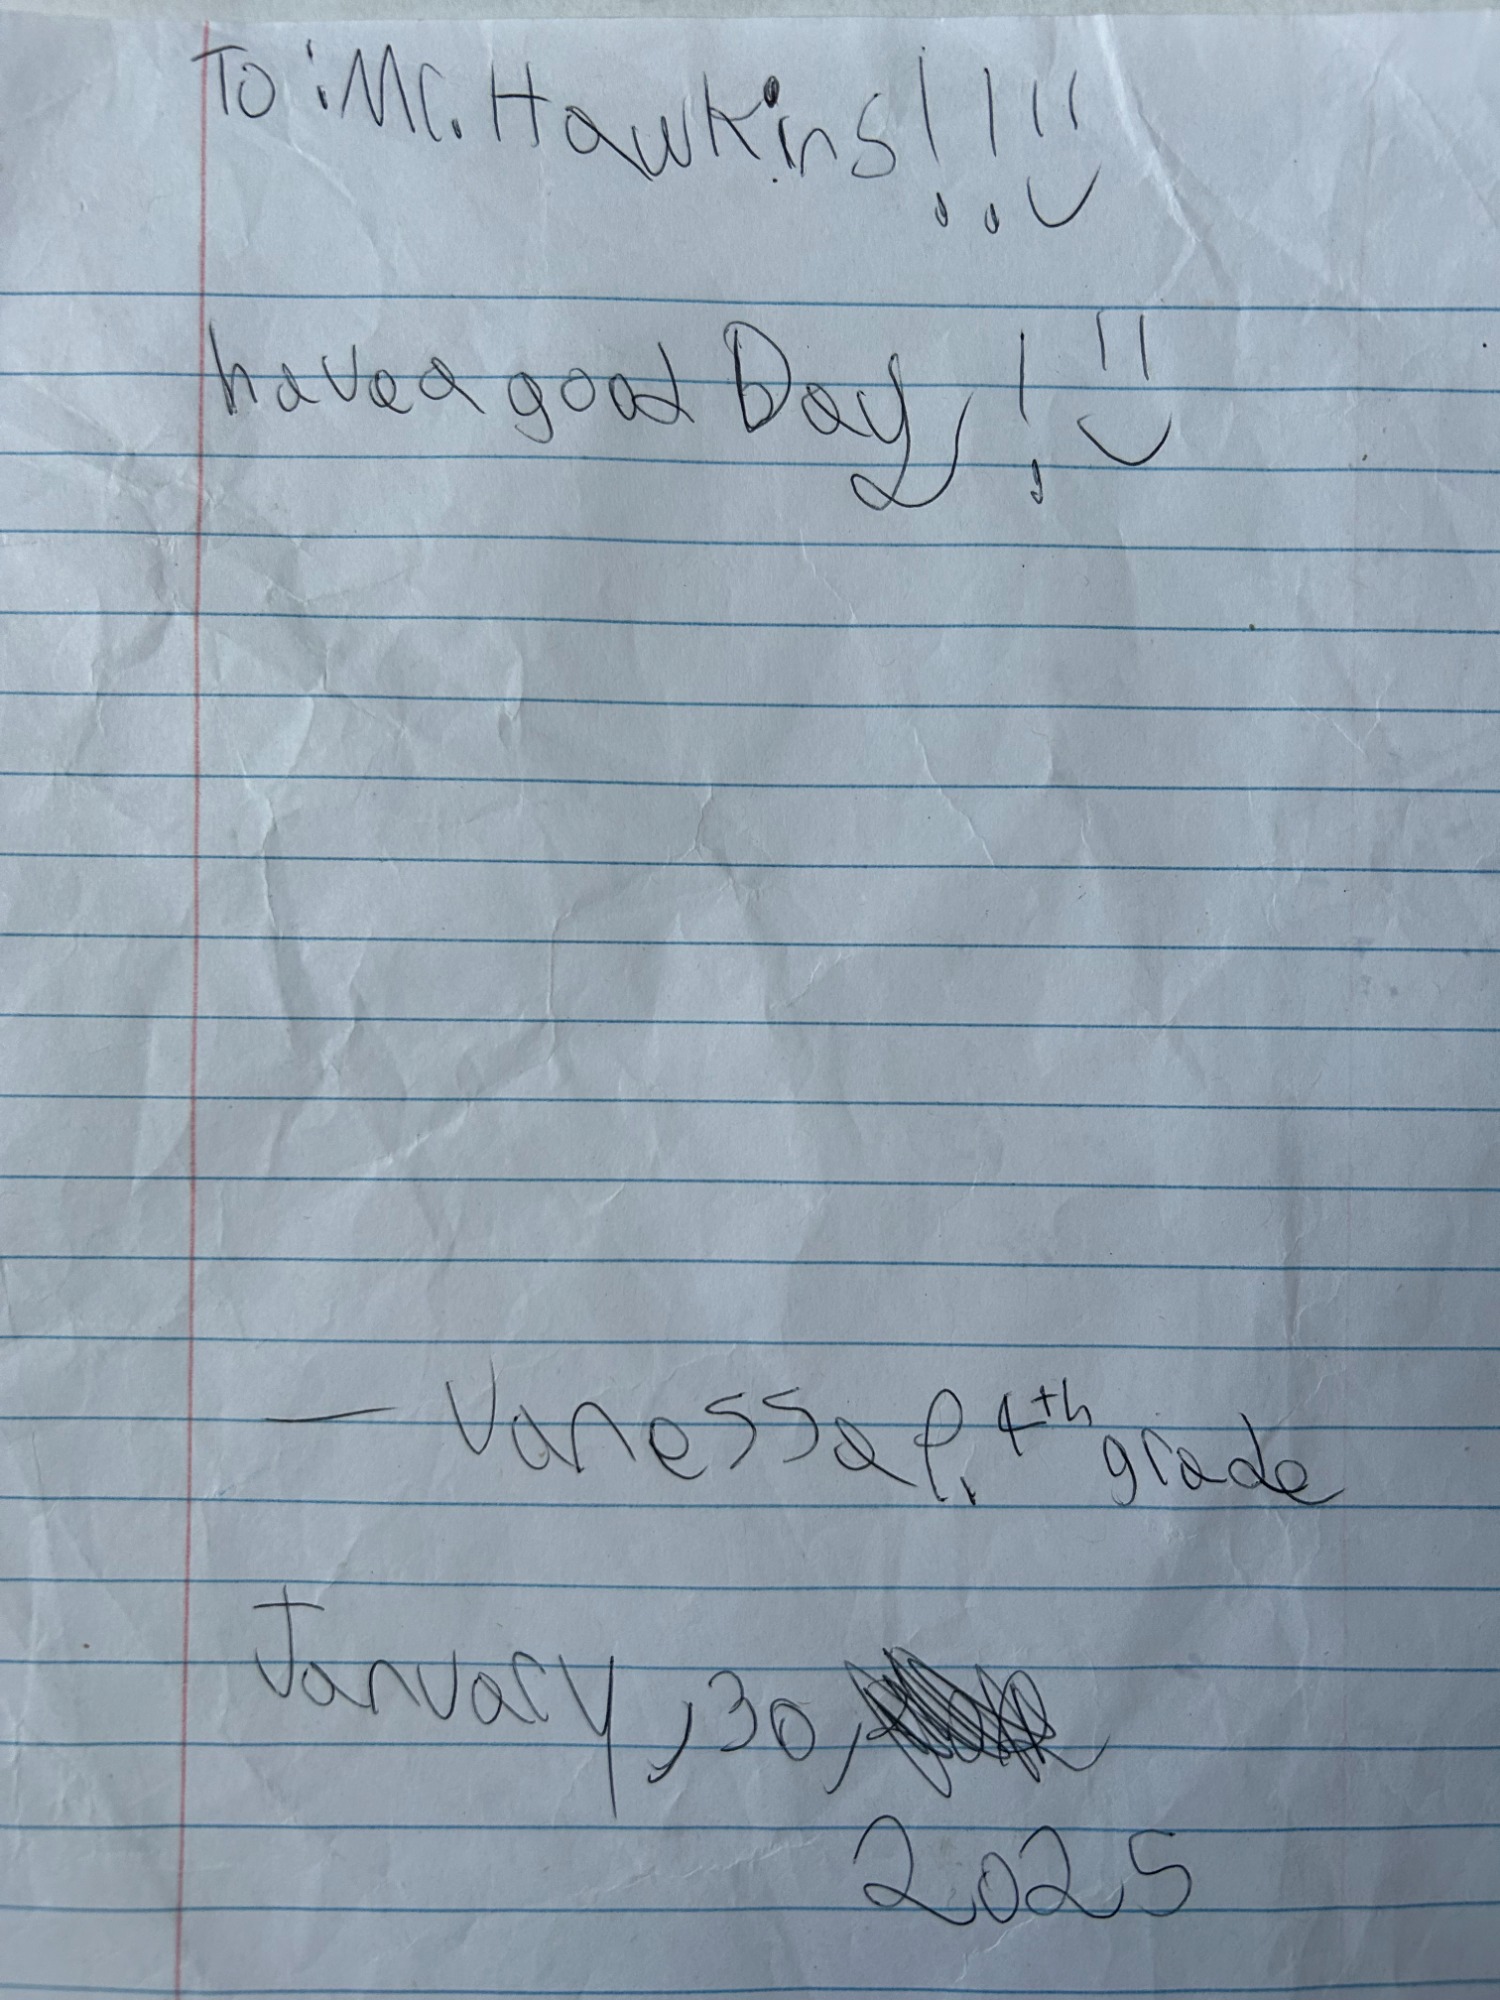 To: Mr. Hawkins!!
have a good Day,!
— Vanessa P. 4th grade
January, 30,
2025